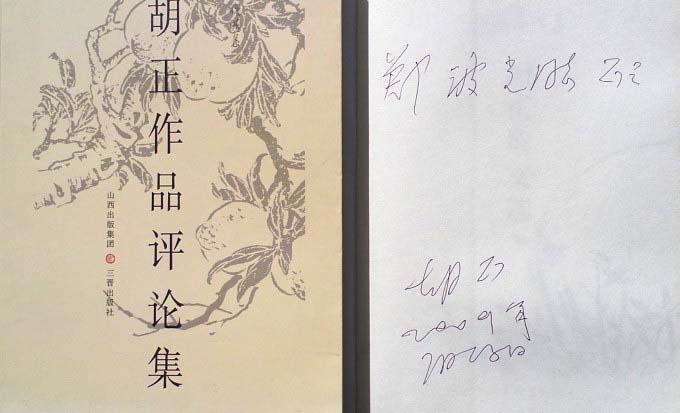 胡正作品评论集
山西出版集团 三晋出版社
郑波光
胡正
2009年